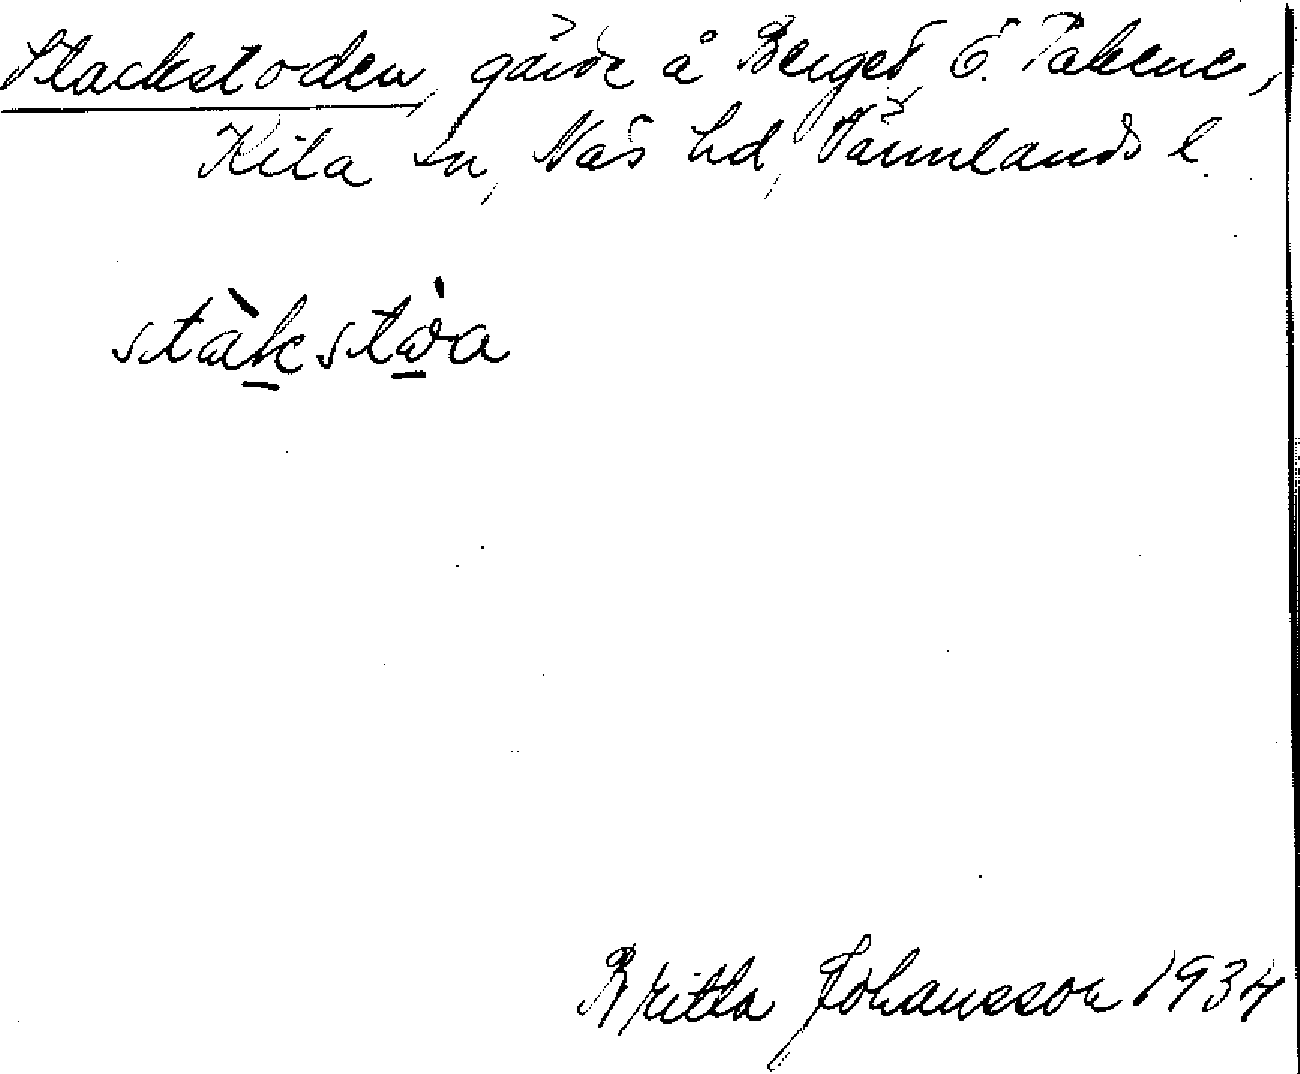 Stackstoden, gärde å Berget, Ö. Takene,
Kila sn, Näs hd, Värmlands l.
stàkstɷ̀a
Britta Johansson 1934